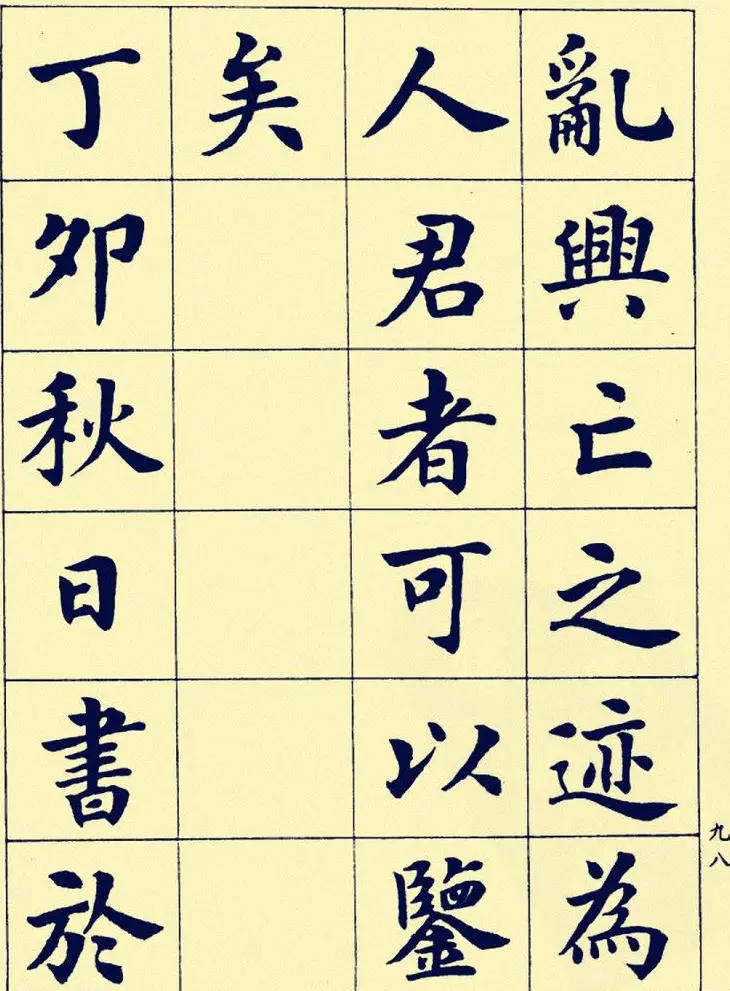 亂興亡之迹為
人君者可以鑒
矣
丁卯秋日書於
九八